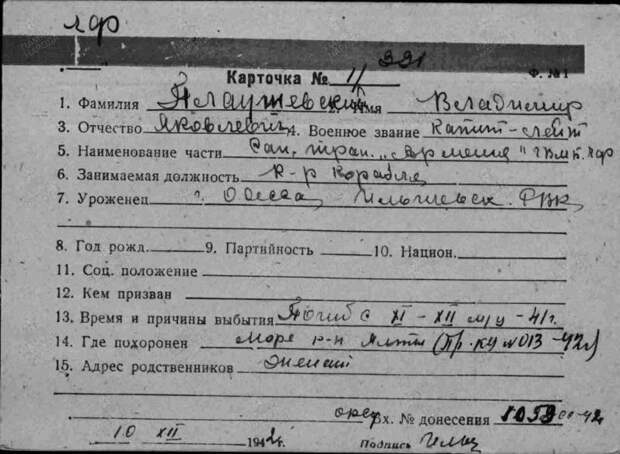 ЧФ
331
Карточка № 11 Ф. №1
1. Фамилия Плаушевский 2. Имя Владимир
3. Отчество Яковлевич 4. Военное звание Капит-лейт
5. Наименование части Сан. тран. „Армения" ГВМБ. ЧФ
6. Занимаемая должность К-р Корабля
7. Уроженец г. Одесса, Ильичевск. РВК
8. Год рожд. 9. Партийность 10. Национ.
11. Соц. положение
12. Кем призван
13. Время и причины выбытия Погиб с XI – XII м/у – 41 г.
14. Где похоронен Море р-н Ялты (Пр. КУ №013 -42г)
15. Адрес родственников Женат
Вх. № донесения 1059 сс-42
10 XII 1942 г. Подпись